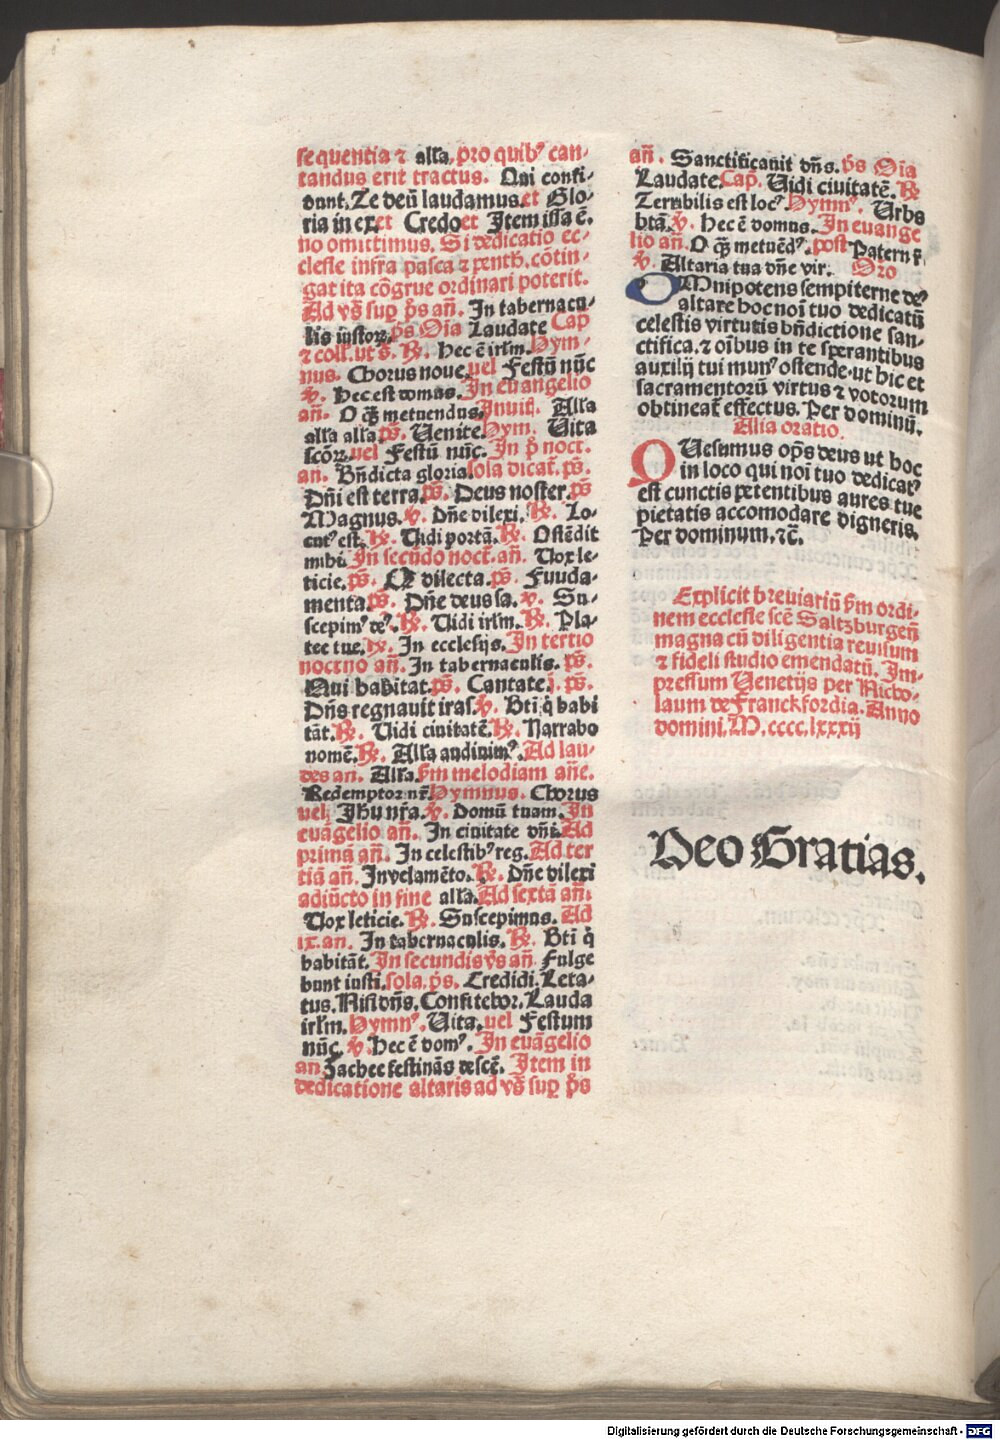 sequentia ⁊ alľa, pro quibꝰ can-
tandus erit tractus. Qui confi-
dunt. Te deū laudamus. et Glo-
ria in ex. et Credo et Item ista ē.
no omittimus. Si dedicatio ec-
clesie infra pasca ⁊ penth. cōtin-
gat ita cōgrue ordinari poterit.
Ad vs̄ suꝑ p̄s an̄. In tabernacu-
lis iustoꝝ p̄s Oīa Laudate Cap
⁊ coll. ut s̄. ℟. Hec ē irl̄m. Hym-
nus. Chorus noue. uel Festū nūc
℣. Hec est domus. In euangelio
an̄. O ꝙ̄ metuendus. Inuit. Alľa
alľa alľa. ps̄. Uenite. Hym. Uita
scōꝝ. uel Festū nūc. In p̄ noct.
an. Bn̄dicta gloria. sola dicat̄. ps̄.
Dn̄i est terra. ps̄. Deus noster. ps̄
Magnus. ℣. Dn̄e dilexi. ℟. Lo-
cutꝰ est. ℟. Uidi portā. ℟. Ostēdit
mihi. In secūdo noct̄. an̄. Uox le-
ticie. ps̄. Q dilecta. ps̄. Funda-
menta. ps̄. Dn̄e deus sa. ℣. Su-
scepimꝰ deꝰ. ℟. Uidi irl̄m. ℟. Pla-
tee tue. ℟. In ecclesijs. In tertio
nocno an̄. In tabernaculis. ps̄.
Qui habitat. ps̄. Cantate j. ps̄.
Dn̄s regnauit iras. ℣. Bti q̄ habi
tāt. ℟. Uidi ciuitatē. ℟. Narrabo
nomē. ℟. Alľa audiuimꝰ. Ad lau-
des an. Alľa. s̄m melodiam an̄e.
Redemptor nr̄. Hymnus. Chorus
uel Jhu nr̄a. ℣. Domū tuam. In
euāgelio an̄. In ciuitate dn̄i. Ad
primā an̄. In celestibꝰ reg. Ad ter
tiā an̄. In velamēto. ℟. Dn̄e dilexi
adiūcto in fine alľa. Ad sextā an̄.
Uox leticie. ℟. Suscepimus. Ad
ix. an. In tabernaculis. ℟. Bti q̄
habitāt. In secundis vs̄ an̄. Fulge
bunt iusti. sola. p̄s. Credidi. Leta-
tus. Nisi dn̄s. Confitebor. Lauda
irl̄m. Hymnꝰ. Uita. uel Festum
nūc. ℣. Hec ē domꝰ. In euāgelio
an Zachee festinās descē. Item in
dedicatione altaris ad vs̄ suꝑ p̄s
an̄. Sanctificauit dn̄s. p̄s Oīa
Laudate. Cap. Uidi ciuitatē. ℟
Terribilis est locꝰ. Hymnꝰ. Urbs
btā. ℣. Hec ē domus. In euange
lio an̄. O ꝙ̄ metuēdꝰ. post Patern̄r̄
℣. Altaria tua dn̄e vir. Oro
OMnipotens sempiterne deꝰ
altare hoc noī tuo dedicatū
celestis virtutis bn̄dictione san-
ctifica. ⁊ oībus in te sperantibus
auxilij tui munꝰ ostende. ut hic et
sacramentorū virtus ⁊ votorum
obtineat̄ effectus. Per dominū.
Alia oratio.
QUesumus op̄s deus ut hoc
in loco qui noī tuo dedicatꝰ
est cunctis petentibus aures tue
pietatis accomodare digneris.
Per dominum. ⁊c̄.
Explicit breuiariū s̄m ordi-
nem ecclesie scē Saltzburgen̄
magna cū diligentia reuisum
⁊ fideli studio emendatū. Im-
pressum Uenetijs per Nicho-
laum de Franckfordia. Anno
domini. M. cccc. lxxxij
Deo Gratias.
Digitalisierung gefördert durch die Deutsche Forschungsgemeinschaft - DFG